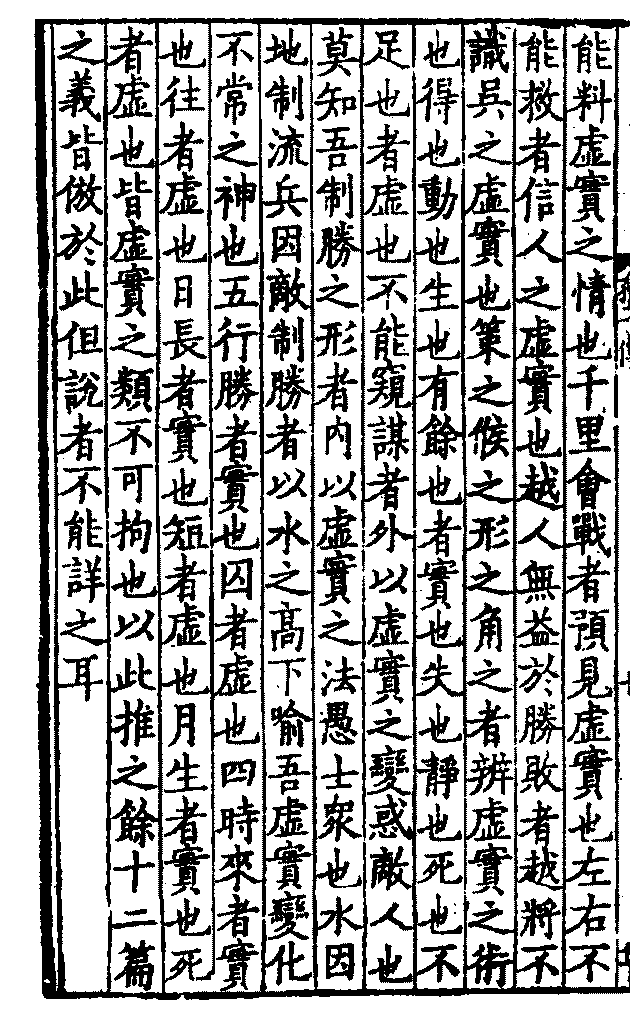 能料虛實之情也千里會戰者預見虛實也左右不
能救者信人之虛實也越人無益於勝敗者越將不
識吳之虛實也策之候之形之角之者辨虛實之術
也得也動也生也有餘也者實也失也靜也死也不
足也者虛也不能窺謀者外以虛實之變惑敵人也
莫知吾制勝之形者內以虛實之法愚士衆也水因
地制流兵因敵制勝者以水之高下喻吾虛實變化
不常之神也五行勝者實也囚者虛也四時來者實
也往者虛也日長者實也短者虛也月生者實也死
者虛也皆虛實之類不可拘也以此推之餘十二篇
之義皆倣於此但說者不能詳之耳